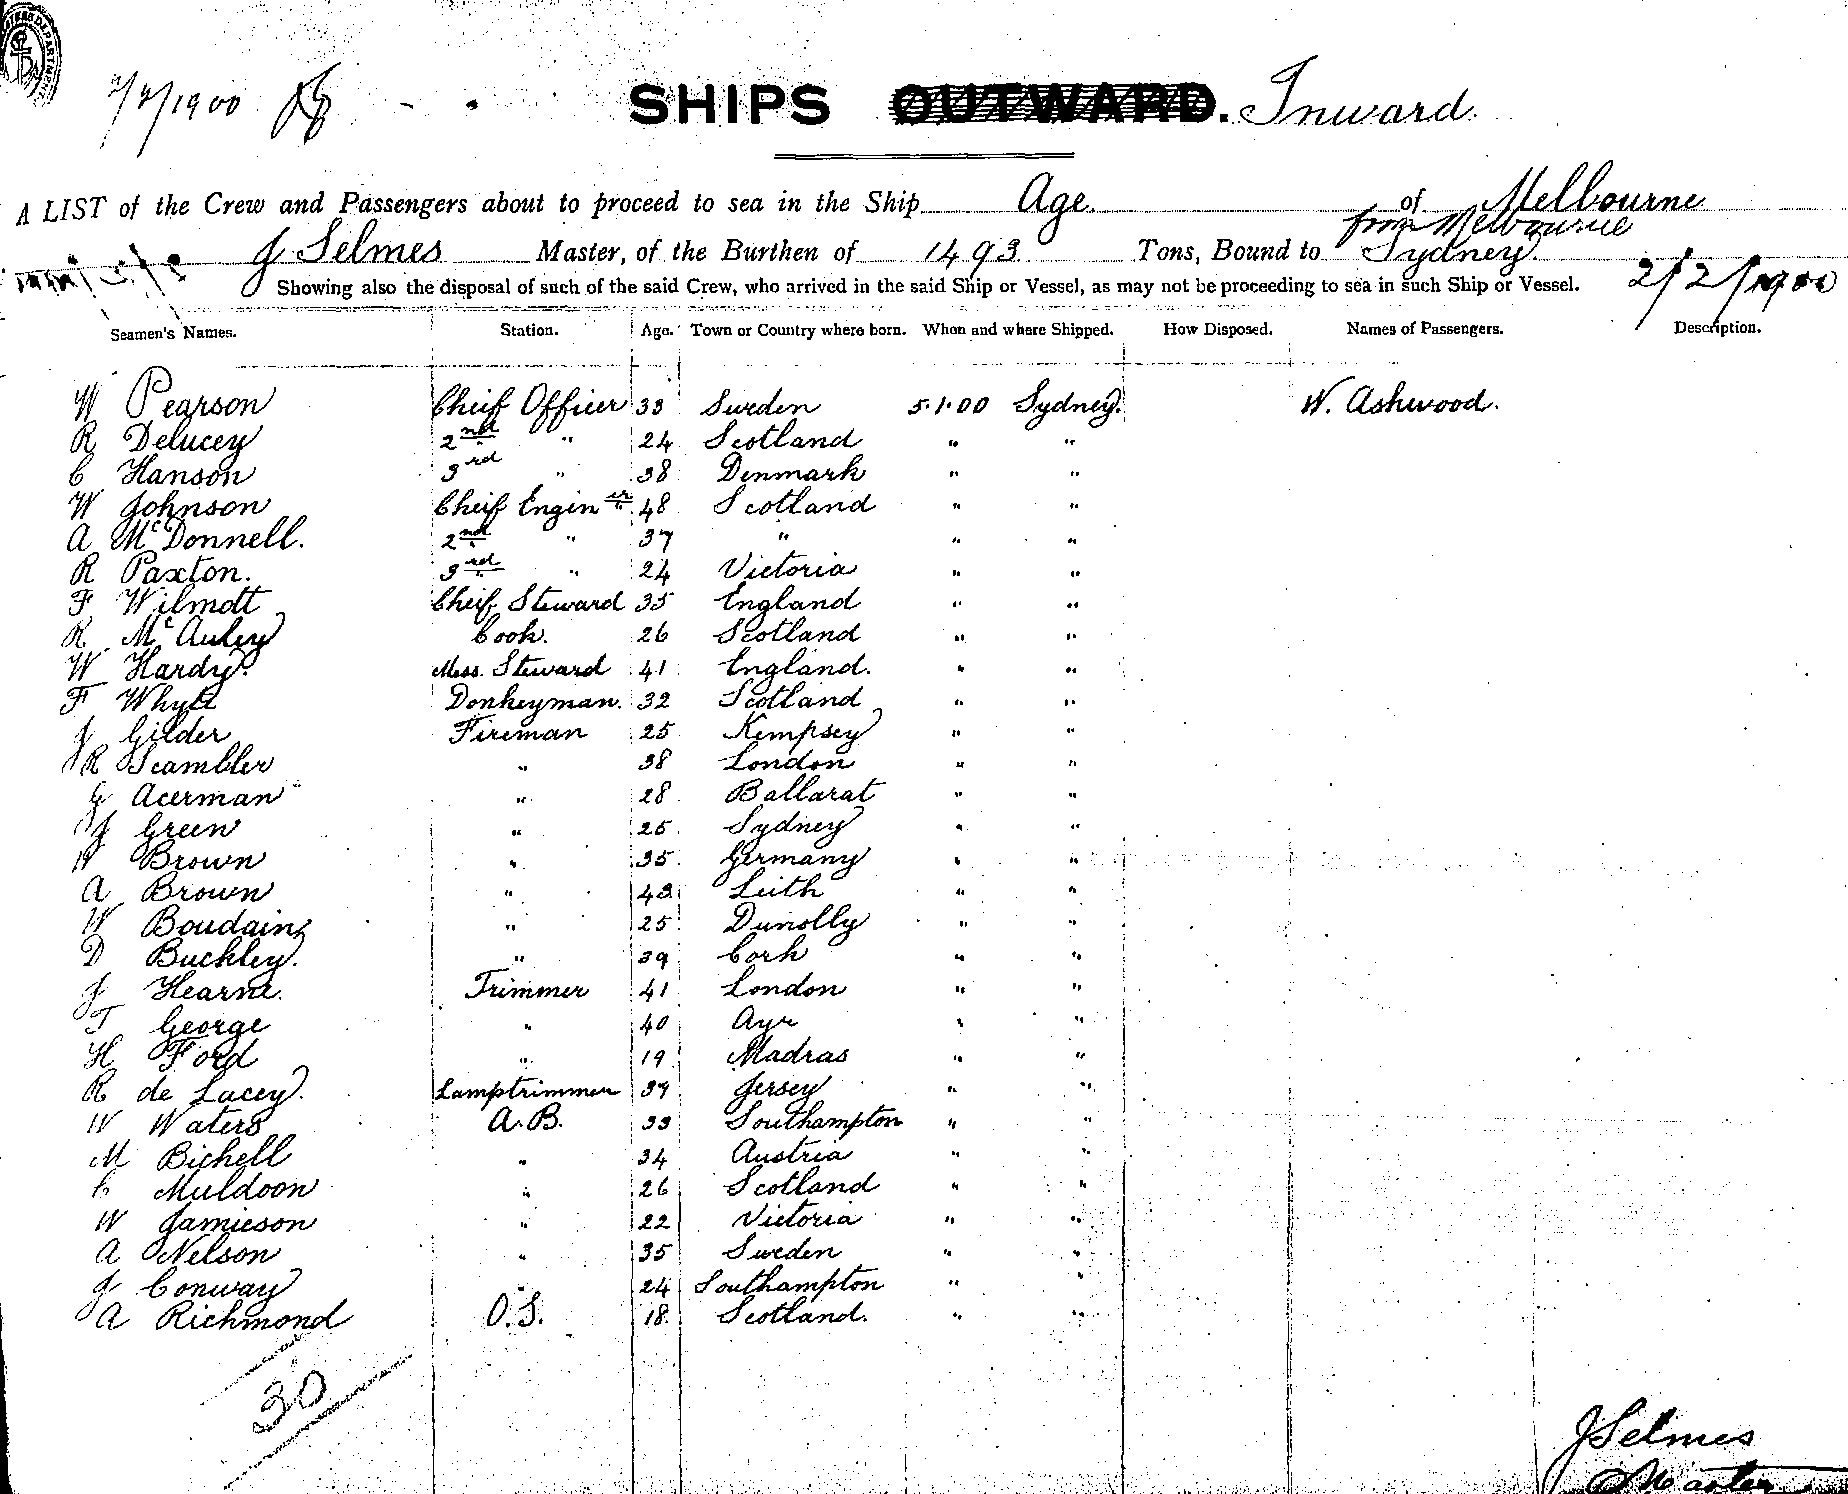 2/2/1900
SHIPS OUTWARD. Inward.
A LIST of the Crew and Passengers about to proceed to sea in the Ship Age. of Melbourne
from Melbourne
J Selmes Master, of the Burthen of 1493 Tons, Bound to Sydney.
Showing also the disposal of such of the said Crew, who arrived in the said Ship or Vessel, as may not be proceeding to sea in such Ship or Vessel. 2/2/1900
Seamen's Names. Station. Age. Town or Country where born. When and where Shipped. How Disposed. Names of Passengers. Description.
W Pearson Cheif Officer 33 Sweden 5.1.00 Sydney. W. Ashwood.
R Delucey 2nd " 24 Scotland " "
C Hanson 3rd " 38 Denmark " "
W Johnson Cheif Engineer 48 Scotland " "
A McDonnell. 2nd " 37 " " "
R Paxton. 3rd " 24 Victoria " "
F Wilmott Cheif Steward 35 England " "
R. McAuley Cook. 26 Scotland " "
W Hardy. Mess. Steward 41 England. " "
F Whyte Donkeyman. 32 Scotland " "
J Gilder Fireman 25 Kempsey " "
R Scambler " 38 London " "
G Acerman " 28 Ballarat " "
J Green " 25 Sydney " "
W Brown " 35 Germany " "
A Brown " 43 Leith " "
W Boudain " 25 Dunolly " "
D Buckley. " 39 Cork " "
J Hearne. Trimmer 41 London " "
T George " 40 Ayr " "
H Ford " 19 Madras " "
R de Lacey. Lamptrimmer 39 Jersey " "
W Waters A.B. 33 Southampton " "
M Bichell " 34 Austria " "
C Muldoon " 26 Scotland " "
W Jamieson " 22 Victoria " "
A Nelson " 35 Sweden " "
J Conway " 24 Southampton " "
A Richmond O.S. 18. Scotland. " "
30
J Selmes
Master